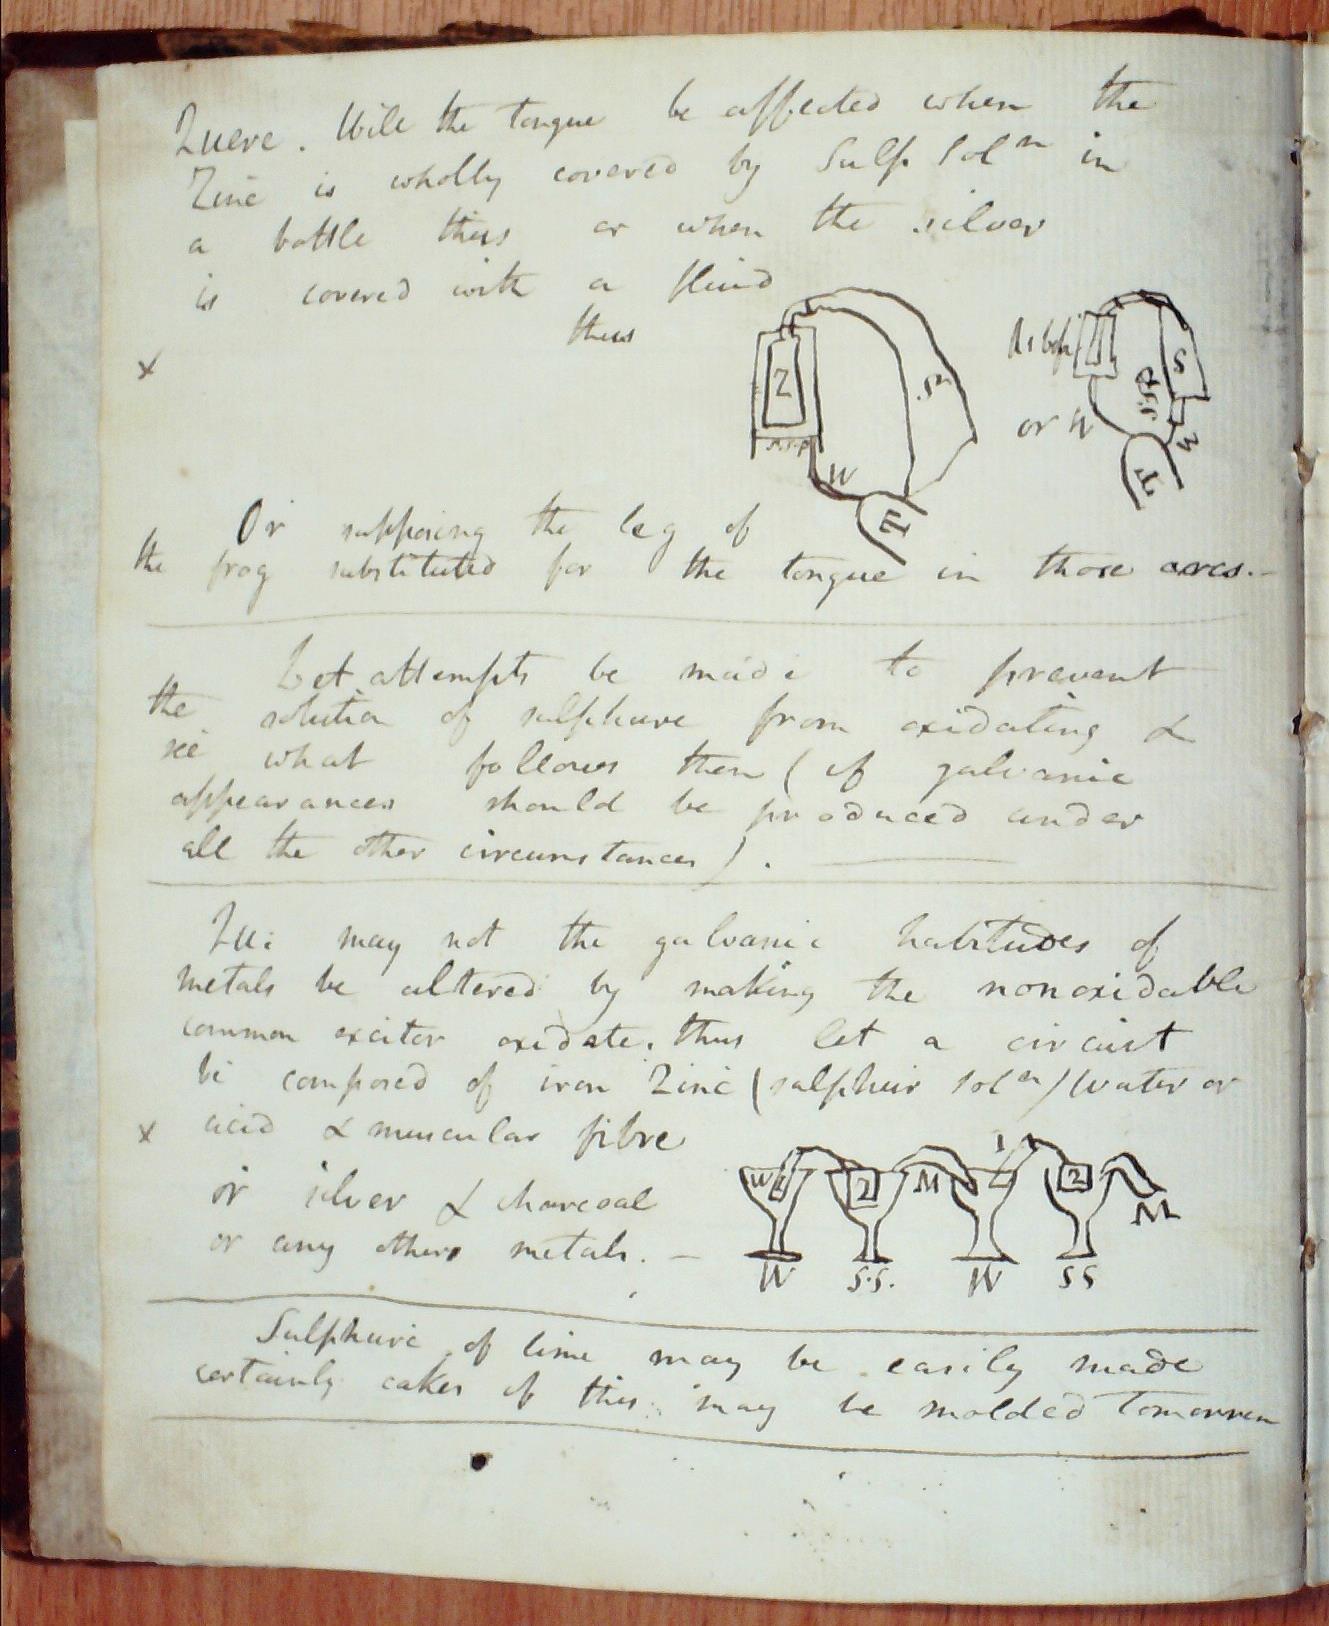 Quere. Will the tongue be affected when the
Zinc is wholly covered by Sulp Solⁿ in
a bottle thus or when the silver
is covered with a fluid
thus
x
Z
S
W
T
or W
S
T
Or supposing the leg of
the frog substituted for the tongue in those arcs.-
Let attempts be made to prevent
the solution of sulphure from oxidating &
see what follows then (if galvanic
appearances should be produced under
all the other circumstances).
Qu: may not the galvanic habitudes of
metals be altered by making the nonoxidable
common exciter oxidate. thus let a circuit
be composed of iron Zinc (sulphur solⁿ) Water or
x acid & muscular fibre
or silver & charcoal
or any others metals. -
W Z M Z M
W S.S. W SS
Sulphure of lime may be easily made
certainly cakes of this may be molded tomorrow